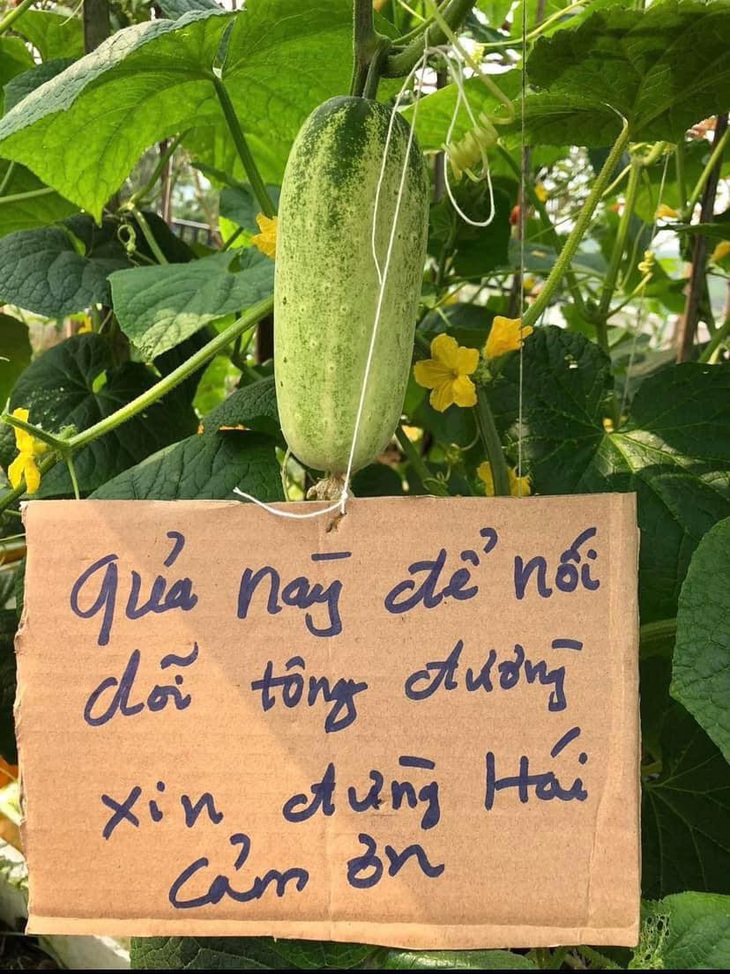 Quả này để nối
dõi tông đường
xin đừng Hái
Cảm ơn